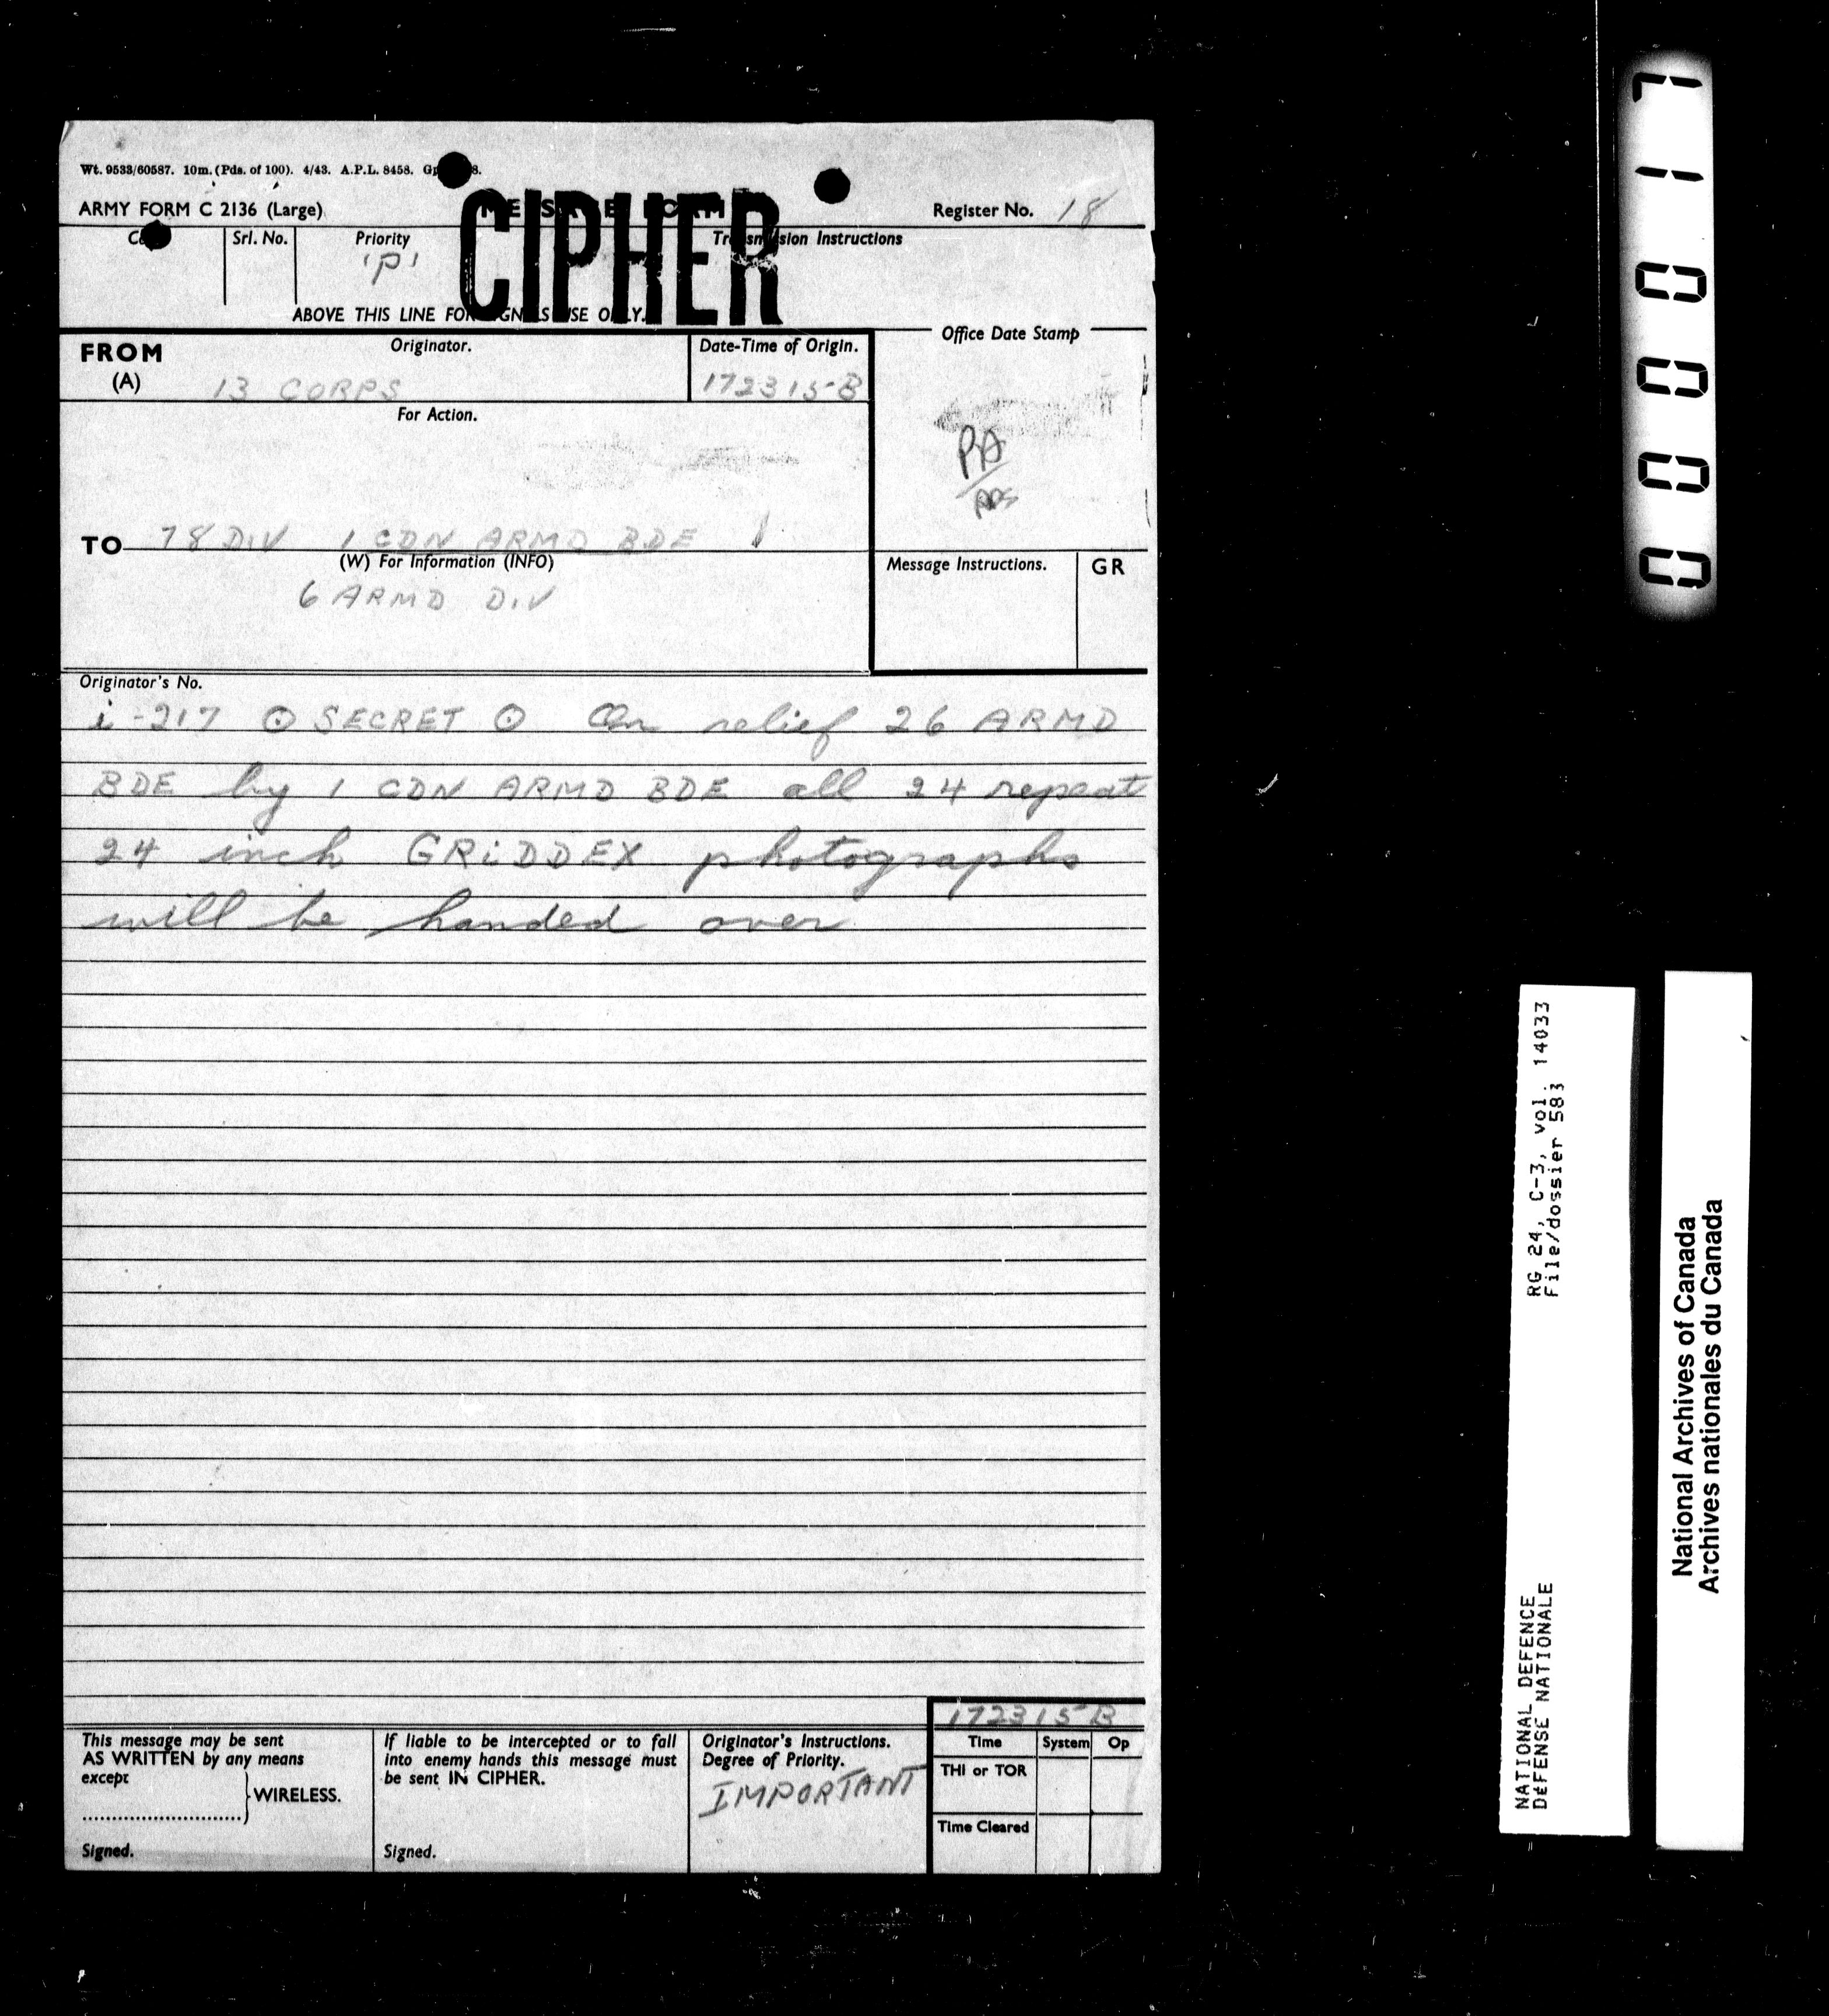 Wt. 9533/60587. 10m. (Pds. of 100). 4/43. A.P.L. 8458.
ARMY FORM C 2136 (Large)
MESSAGE FORM
CIPHER
Register No. 18
Srl. No.
Priority
'P'
Transmission Instructions
ABOVE THIS LINE FOR SIGNALS USE ONLY.
FROM
(A)
Originator.
13 CORPS
Date-Time of Origin.
172315B
Office Date Stamp
PA
For Action.
TO 78 DIV 1 CDN ARMD BDE
(W) For Information (INFO)
6 ARMD DIV
Message Instructions.
GR
Originator's No.
i-217 ⊙ SECRET ⊙ On relief 26 ARMD
BDE by 1 CDN ARMD BDE all 24 repeat
24 inch GRiDDEX photographs
will be handed over
172315B
This message may be sent
AS WRITTEN by any means
except
WIRELESS.
Signed.
If liable to be intercepted or to fall
into enemy hands this message must
be sent IN CIPHER.
Signed.
Originator's Instructions.
Degree of Priority.
IMPORTANT
Time System Op
THI or TOR
Time Cleared
0000117
RG 24, C-3, vol. 14033
File/dossier 583
NATIONAL DEFENCE
DÉFENSE NATIONALE
National Archives of Canada
Archives nationales du Canada